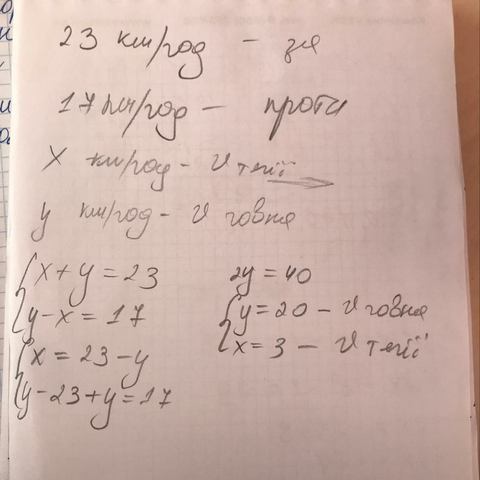 23 км/год — за
17 км/год — проти
x км/год - v течії
y км/год - v човна
x + y = 23
y - x = 17
x = 23 - y
y - 23 + y = 17
2y = 40
y = 20 - v човна
x = 3 - v течії